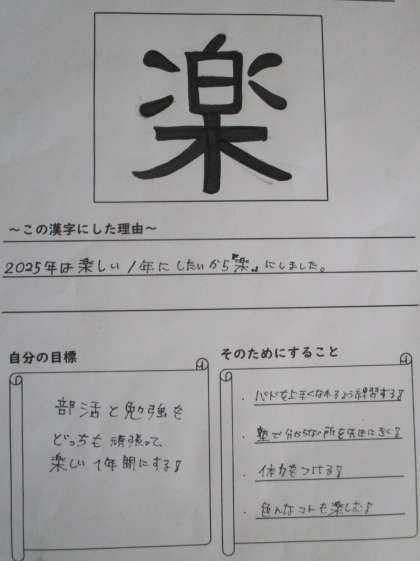 楽
～この漢字にした理由～
2025年は楽しい1年にしたいから『楽』にしました。
自分の目標
部活と勉強を
どっちも頑張って、
楽しい1年間にする!
そのためにすること
・バドを上手くなれるよう練習する!
・塾で分からない所を先生にきく!
・体力をつける!
・色んなコトも楽しむ!